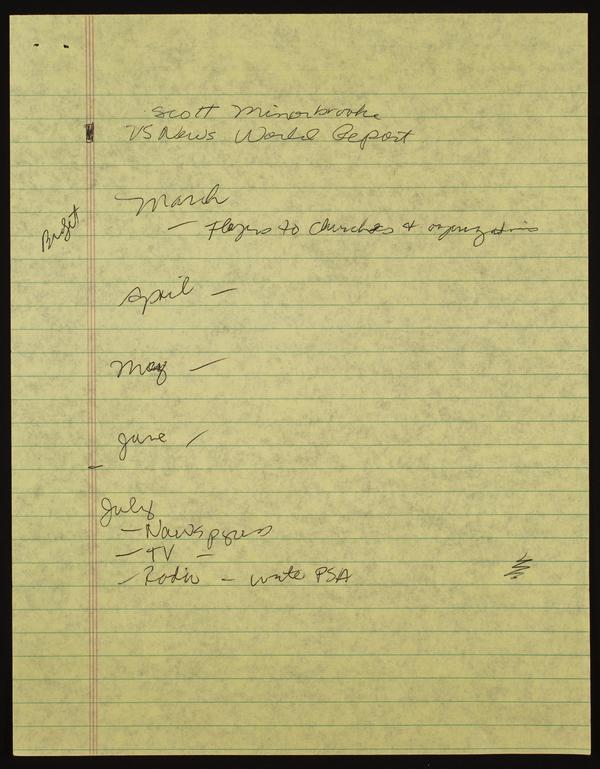 Scott Minorbrooke
US News World Report
March
Budget
— Flyers to churches & organizations
April —
May —
June —
July
— Newspapers
— TV —
— Radio — write PSA